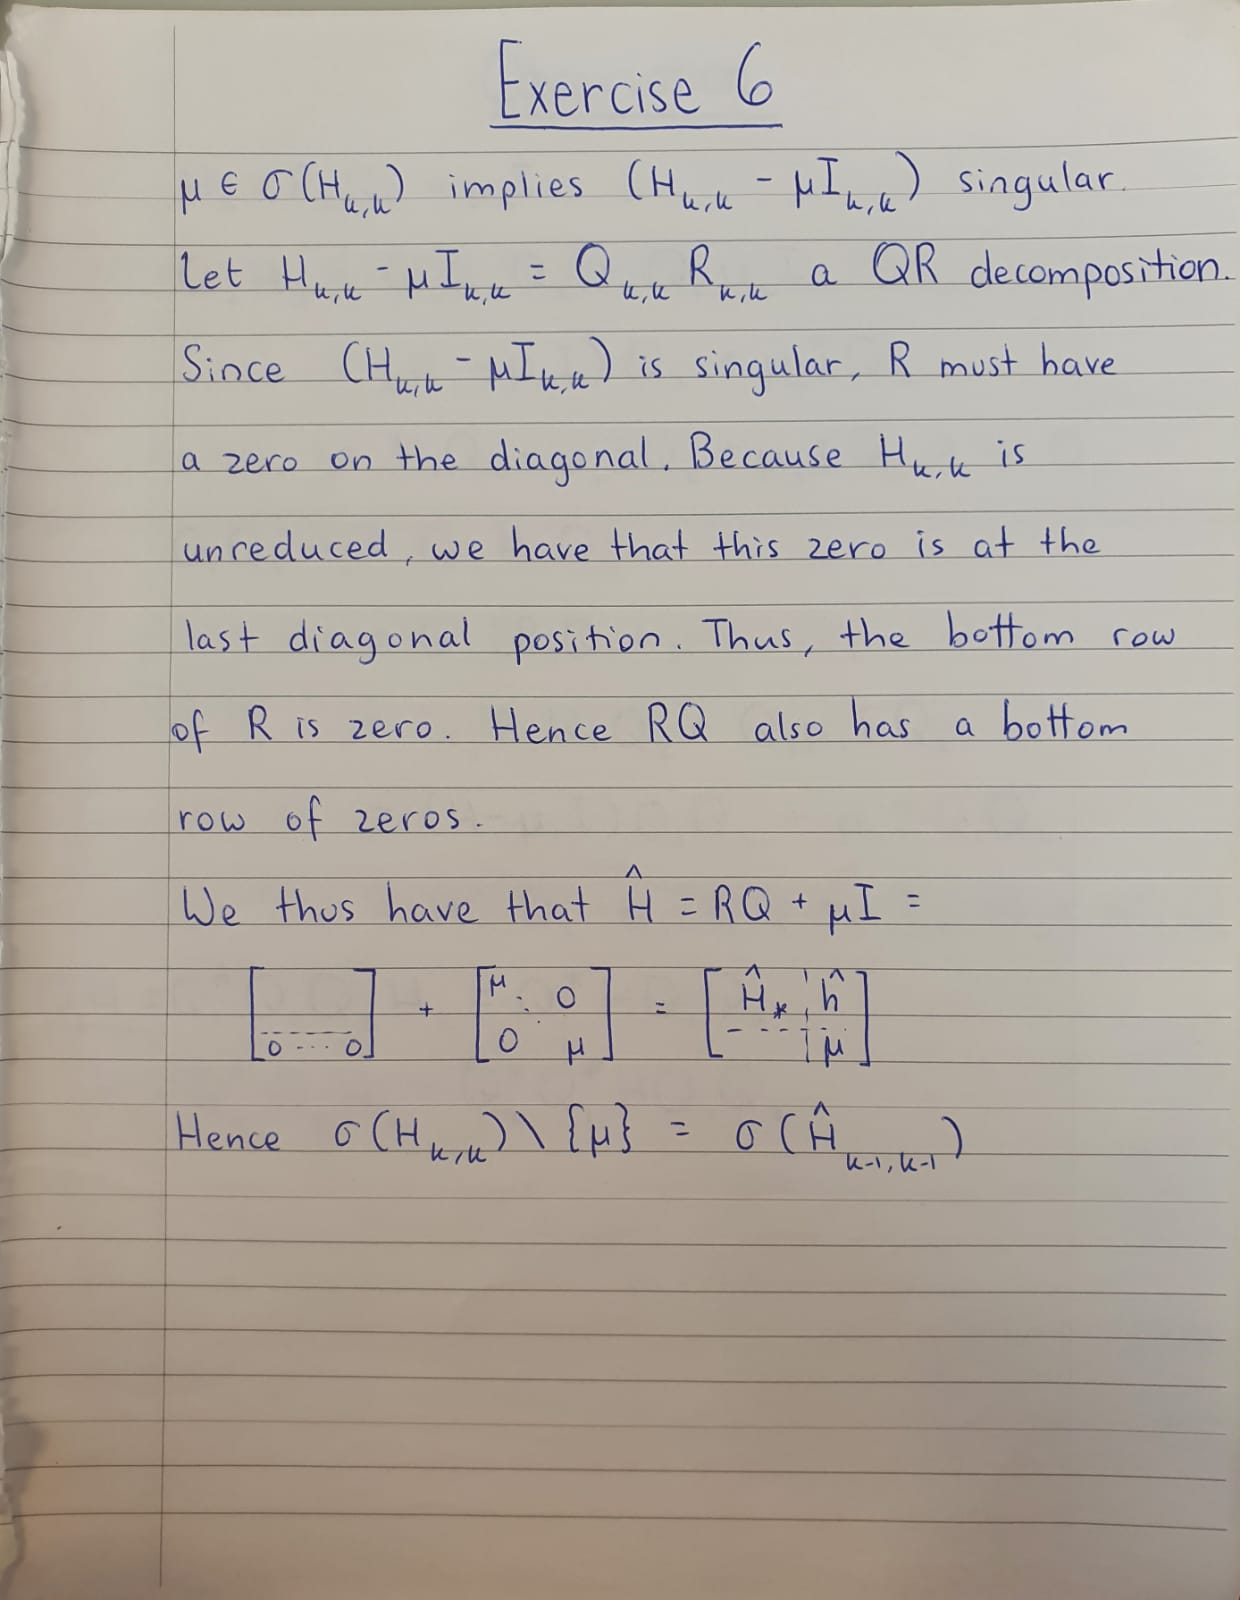 Exercise 6
μ ∈ σ(H_{k,k}) implies (H_{k,k} - μI_{k,k}) singular.
Let H_{k,k} - μI_{k,k} = Q_{k,k} R_{k,k} a QR decomposition.
Since (H_{k,k} - μI_{k,k}) is singular, R must have
a zero on the diagonal. Because H_{k,k} is
unreduced, we have that this zero is at the
last diagonal position. Thus, the bottom row
of R is zero. Hence RQ also has a bottom
row of zeros.
We thus have that Ĥ = RQ + μI =
[ 0 ... 0 ] + [ μ ⋱ 0 0 μ ] = [ Ĥ_* ĥ μ ]
Hence σ(H_{k,k}) \ {μ} = σ(Ĥ_{k-1,k-1})